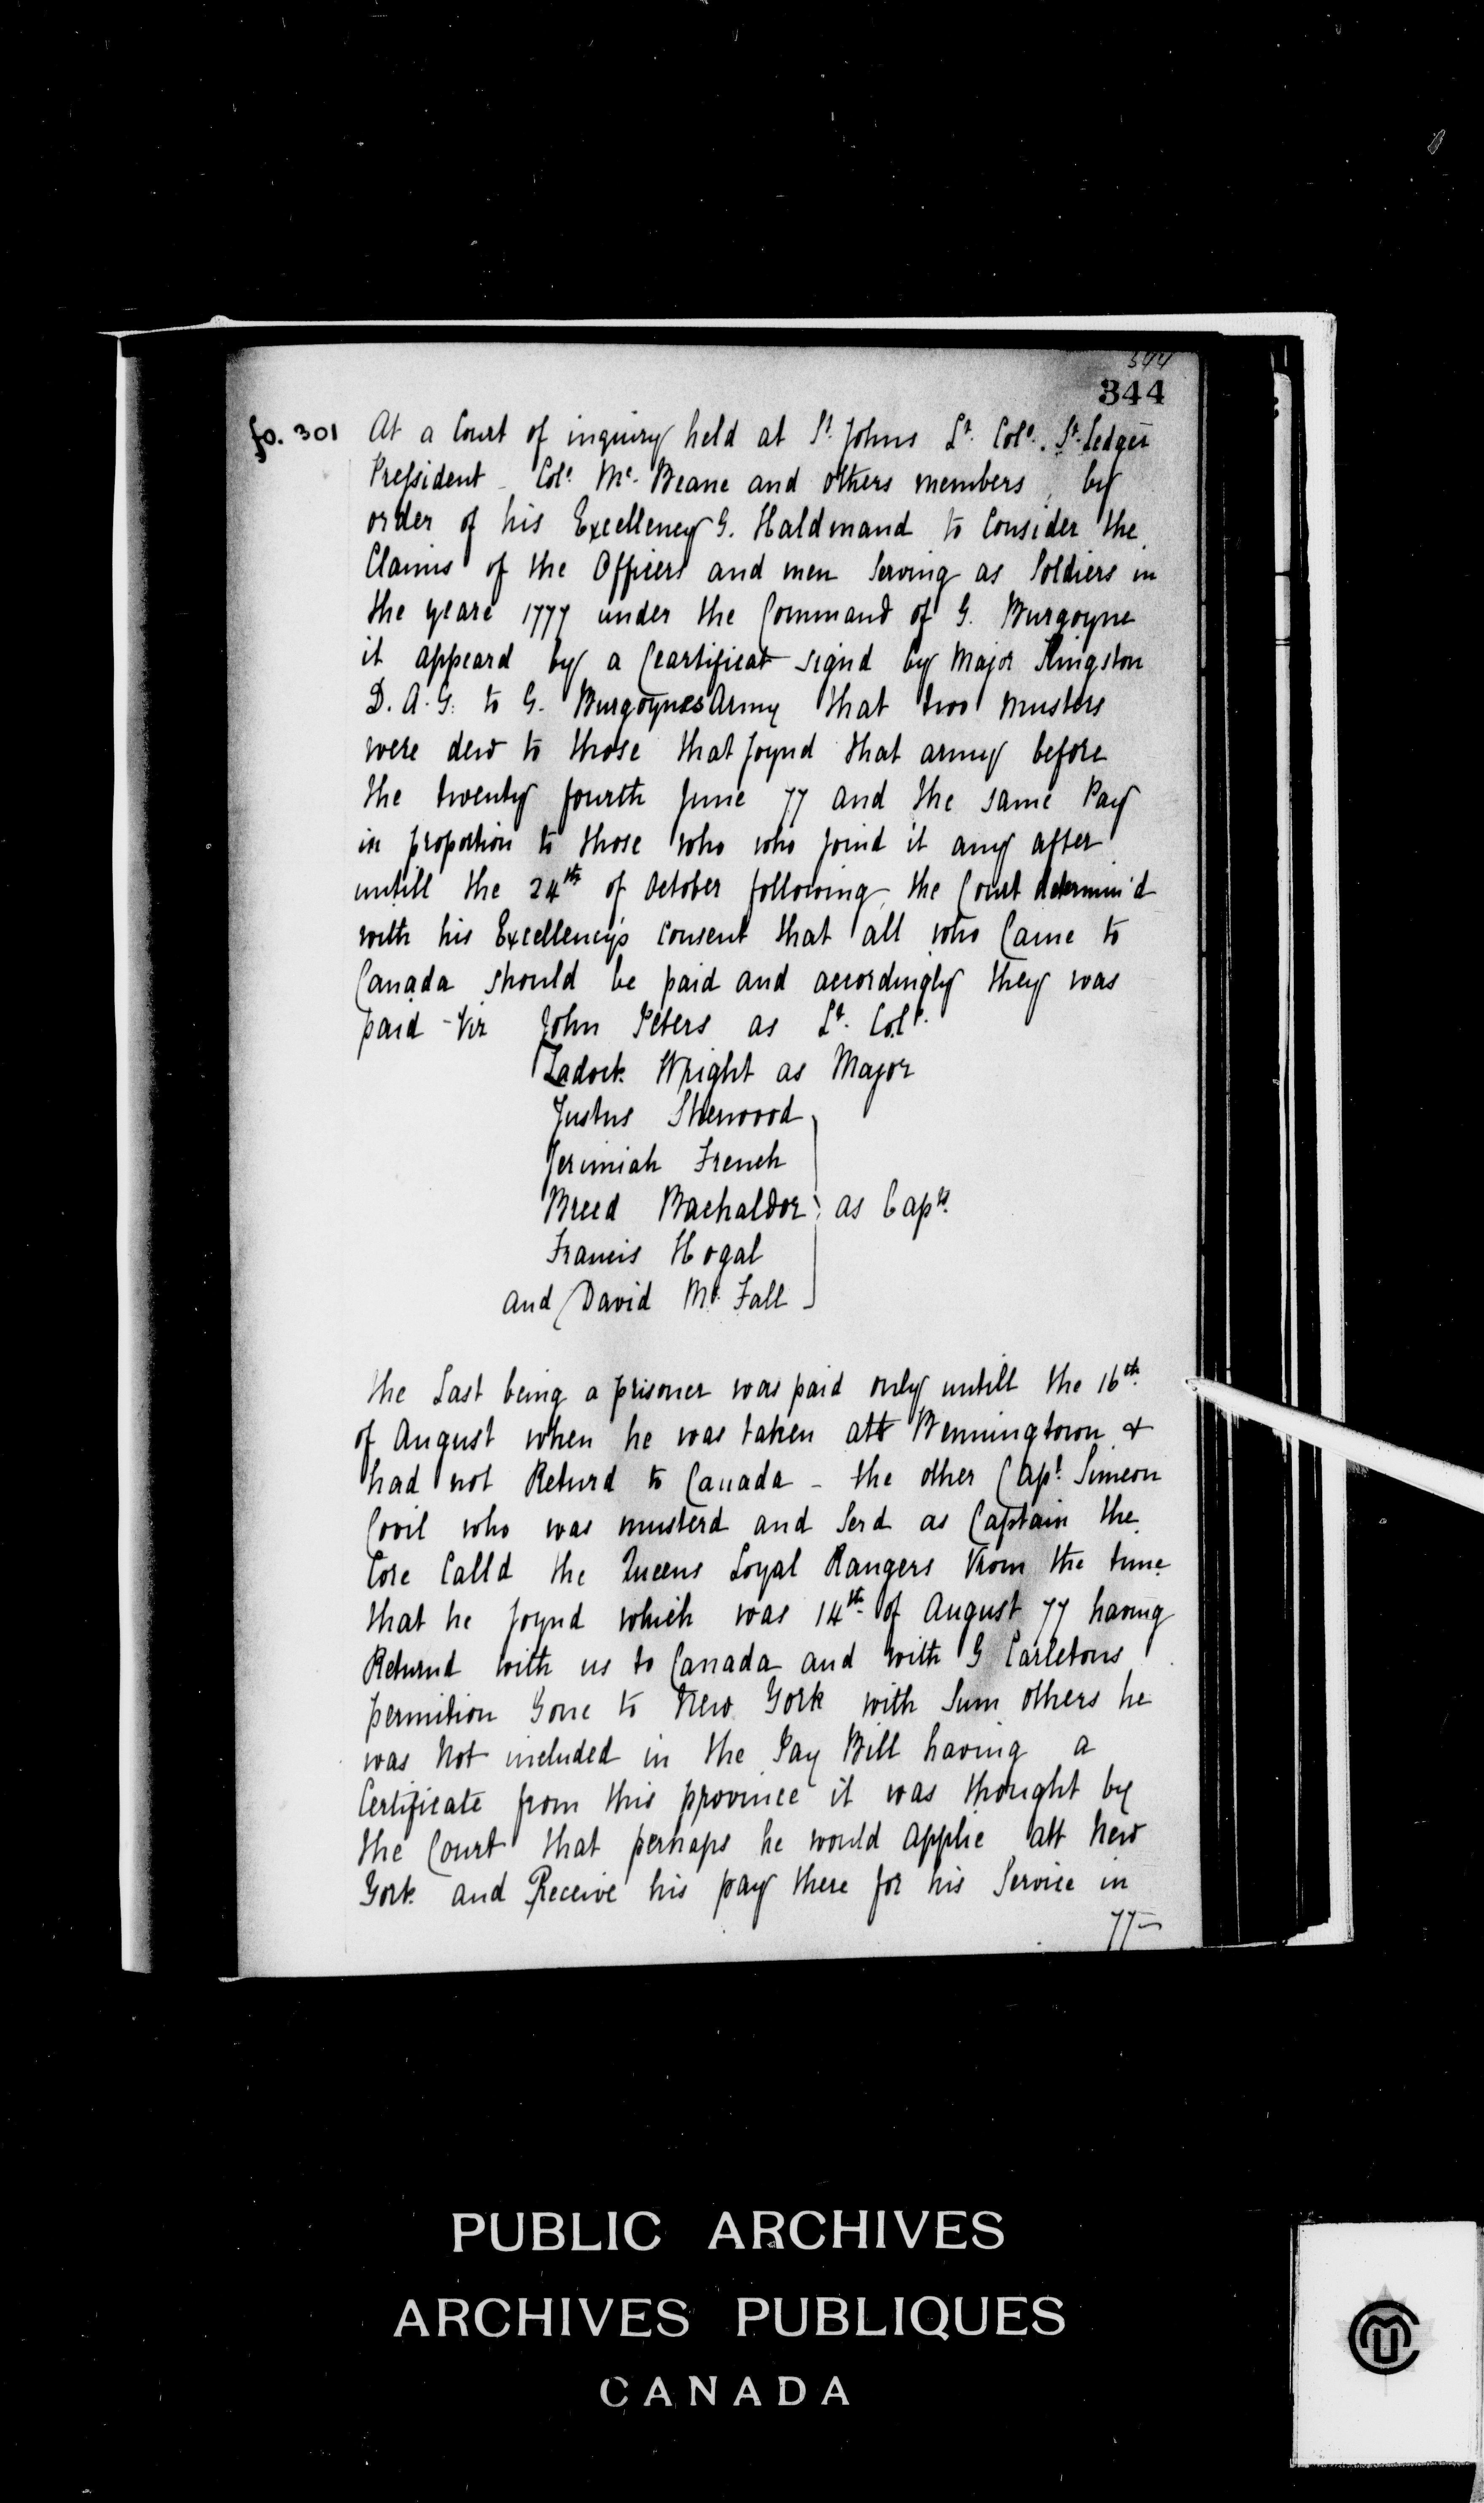 344
fo. 301 At a Court of inquiry held at St. Johns Lt. Colo. St. Ledger
Pressident - Colo. Mc. Beane and others members, by
order of his Excellency G. Haldmand to Consider the
Claims of the Officers and men Serving as Soldiers in
the yeare 1777 under the Command of G. Burgoyne
it appeard by a Ceartificat signd by Major Kingston
D. A. G. to G. Burgoynes Army that two musters
were dew to those that joynd that army before
the twenty fourth June 77 and the same Pay
in proportion to those who who joind it any after
untill the 24th of October following, the Court determin'd
with his Excellencys consent that all who Came to
Canada should be paid and accordingly they was
paid - Viz John Peters as Lt. Colo.
Zadock Wright as Major
Justus Sherwood
Jerimiah French
Breed Bachaldor as Capts.
Francis Hogal
and David Mc. Fall
the Last being a prisoner was paid only untill the 16th
of August when he was taken att Benningtown &
had not Returd to Canada - the other Capt. Simeon
Covil who was musterd and Serd as Captain the
Core Calld the Queens Loyal Rangers From the time
that he joynd which was 14th of August 77 having
Returnd with us to Canada and with G Carletons
permition Gone to New York with Sum others he
was Not included in the Pay Bill having a
Certificate from this province it was thought by
the Court that perhaps he would Applie att New
York and Receive his pay there for his Service in
77-
PUBLIC ARCHIVES
ARCHIVES PUBLIQUES
CANADA